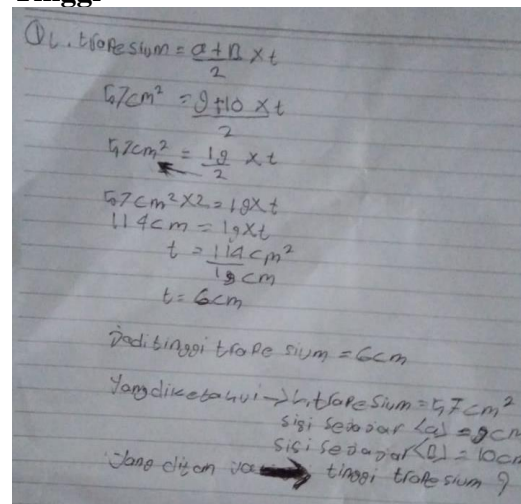 Tinggi
L. trapesium = a + B x t
2
57cm² = 9+10 x t
2
57cm² = 19 x t
2
57cm² x 2 = 19 x t
114cm = 19 x t
t = 114 cm²
19 cm
t = 6cm
Jadi tinggi trapesium = 6cm
Yang diketahui → L. trapesium = 57 cm²
sisi sejajar <a> = 9cm
sisi sejajar <B> = 10cm
tinggi trapesium ?